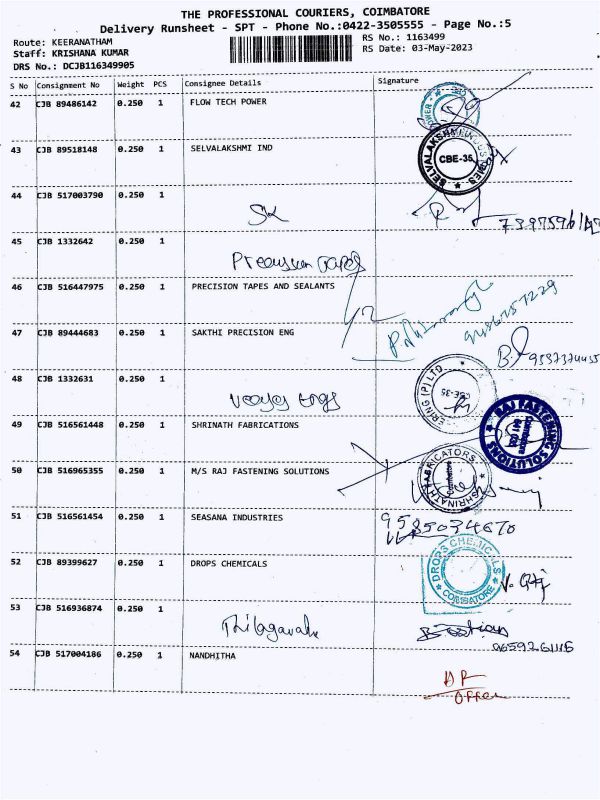 THE PROFESSIONAL COURIERS, COIMBATORE
Delivery Runsheet - SPT - Phone No.:0422-3505555 - Page No.:5
Route: KEERANATHAM
Staff: KRISHANA KUMAR
DRS No.: DCJB116349905
RS No.: 1163499
RS Date: 03-May-2023
S No Consignment No Weight PCS Consignee Details Signature
42 CJB 89486142 0.250 1 FLOW TECH POWER
POWER
43 CJB 89518148 0.250 1 SELVALAKSHMI IND
SELVALAKSHMI INDUSTRIES CBE-35
44 CJB 517003790 0.250 1
SK
45 CJB 1332642 0.250 1
Precission Tapes
46 CJB 516447975 0.250 1 PRECISION TAPES AND SEALANTS
47 CJB 89444683 0.250 1 SAKTHI PRECISION ENG
48 CJB 1332631 0.250 1
ERING (P) LTD CBE-35
49 CJB 516561448 0.250 1 SHRINATH FABRICATIONS
RAJ FASTENING SOLUTIONS Coimbatore
50 CJB 516965355 0.250 1 M/S RAJ FASTENING SOLUTIONS
SHRINATH FABRICATORS Coimbatore
51 CJB 516561454 0.250 1 SEASANA INDUSTRIES
9585034670
52 CJB 89399627 0.250 1 DROPS CHEMICALS
DROPS CHEMICALS COIMBATORE
53 CJB 516936874 0.250 1
54 CJB 517004186 0.250 1 NANDHITHA